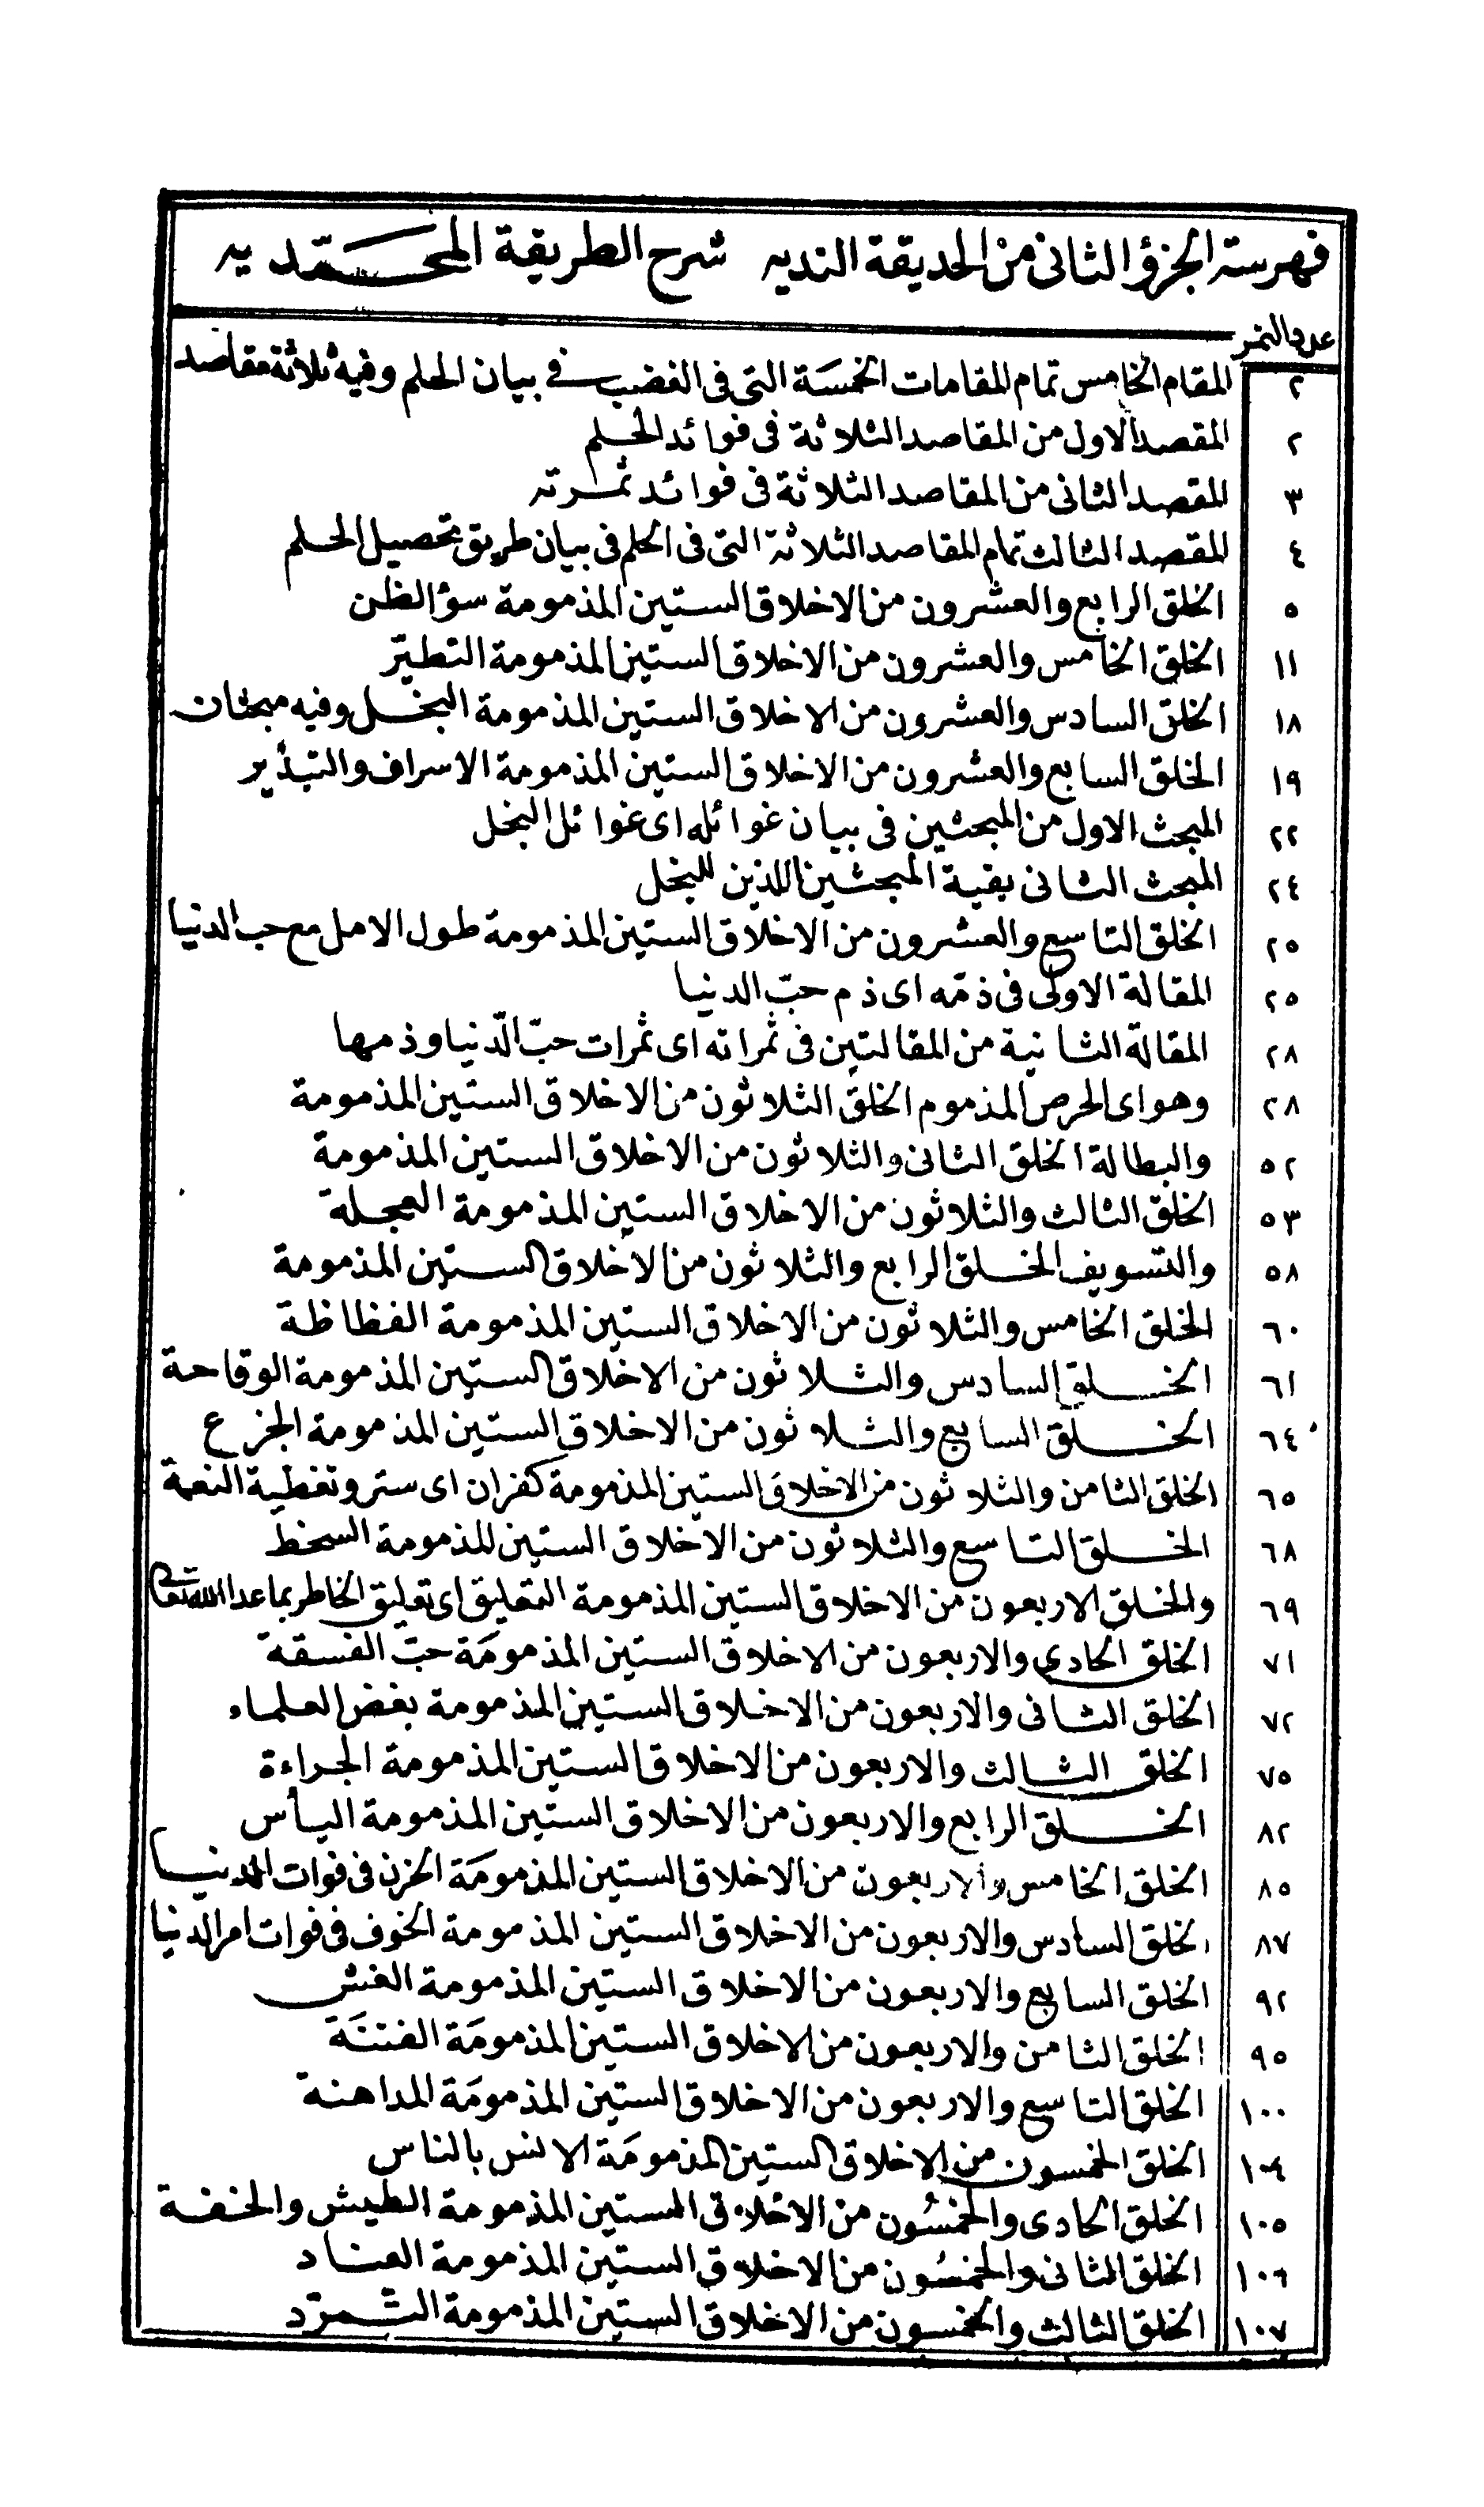 فهرسة الجزؤ الثانى من الحديقة النديه شرح الطريقة المحمديه
عدد النمر
٢ المقام الخامس تمام المقامات الخمسة التى فى الغضب فى بيان الحلم وفيه ثلاثة مقاصد
٢ المقصد الاول من المقاصد الثلاثة فى فوائد الحلم
٣ المقصد الثانى من المقاصد الثلاثة فى فوائد ثمرته
٤ المقصد الثالث تمام المقاصد الثلاثة التى فى الحلم فى بيان طريق تحصيل الحلم
٥ الخلق الرابع والعشرون من الاخلاق الستين المذمومة سوؤ الظن
١١ الخلق الخامس والعشرون من الاخلاق الستين المذمومة التطيّر
١٨ الخلق السادس والعشرون من الاخلاق الستين المذمومة البخل وفيه مبحثان
١٩ الخلق السابع والعشرون من الاخلاق الستين المذمومة الاسراف والتبذير
٢٢ المبحث الاول من المبحثين فى بيان غوائله اى غوائل البخل
٢٤ المبحث الثانى بقية المبحثين اللذين للبخل
٢٥ الخلق التاسع والعشرون من الاخلاق الستين المذمومة طول الامل مع حب الدنيا
٢٥ المقالة الاولى فى ذمّه اى ذم حبّ الدنيا
٢٨ المقالة الثانية من المقالتين فى ثمراته اى ثمرات حبّ الدّنيا وذمها
٢٨ وهو اى الحرص المذموم الخلق الثلاثون من الاخلاق الستين المذمومة
٥٢ والبطالة الخلق الثانى والثلاثون من الاخلاق الستين المذمومة
٥٣ الخلق الثالث والثلاثون من الاخلاق الستين المذمومة العجلة
٥٨ والتسويف الخلق الرابع والثلاثون من الاخلاق الستين المذمومة
٦٠ الخلق الخامس والثلاثون من الاخلاق الستين المذمومة الفظاظة
٦١ الخلق السادس والثلاثون من الاخلاق الستين المذمومة الوقاحة
٦٤ الخلق السابع والثلاثون من الاخلاق الستين المذمومة الجزع
٦٥ الخلق الثامن والثلاثون من الاخلاق الستين المذمومة كفران اى ستر وتغطية النعمة
٦٨ الخلق التاسع والثلاثون من الاخلاق الستين المذمومة السخط
٦٩ والخلق الاربعون من الاخلاق الستين المذمومة التعليق اى تعليق الخاطر بما عدا الله تعالى
٧١ الخلق الحادى والاربعون من الاخلاق الستين المذمومَة حبّ الفسقة
٧٢ الخلق الثانى والاربعون من الاخلاق الستين المذمومة بغض العلماء
٧٥ الخلق الثالث والاربعون من الاخلاق الستين المذمومة الجراءة
٨٢ الخلق الرابع والاربعون من الاخلاق الستين المذمومة اليأس
٨٥ الخلق الخامس والاربعون من الاخلاق الستين المذمومَة الحزن فى فوات الدنيا
٨٧ الخلق السادس والاربعون من الاخلاق الستين المذمومة الخوف فى فوات امر الدنيا
٩٢ الخلق السابع والاربعون من الاخلاق الستين المذمومة الغش
٩٥ الخلق الثامن والاربعون من الاخلاق الستين المذمومَة الفتنَة
١٠٠ الخلق التاسع والاربعون من الاخلاق الستين المذمومَة المداهنة
١٠٤ الخلق الخمسون من الاخلاق الستين المذمومَة الانس بالناس
١٠٥ الخلق الحادى والخمسُون من الاخلاق الستين المذمومة الطيش والخفة
١٠٦ الخلق الثانى والخمسُون من الاخلاق الستين المذمومة العناد
١٠٧ الخلق الثالث والخمسون من الاخلاق الستين المذمومة التمرّد